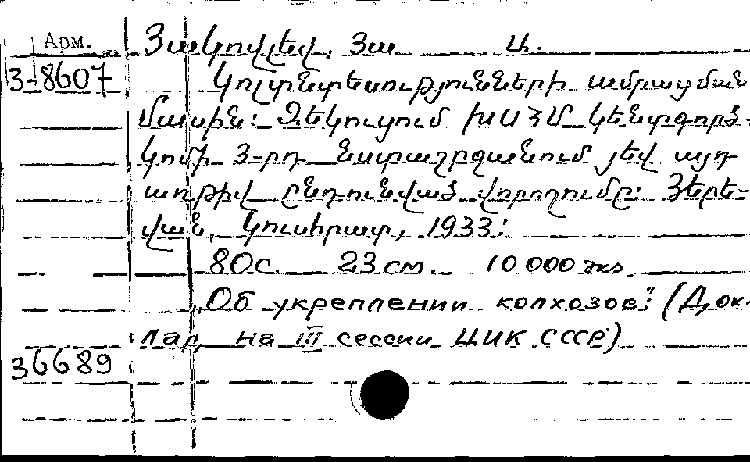 Арм. Յակովլեվ, Յա. Ա.
3-8607 Կոլտնտեսությունների ամրապնդման
մասին: Զեկուցում ԽՍՀՄ Կենտգործ-
կոմի 3-րդ նստաշրջանում յեվ այդ
առթիվ ընդունված վորոշումը: Յերե-
վան, Կուսհրատ, 1933:
80с. 23 см. 10 000 экз.
„Об укреплении колхозов" (Док-
лад на III сессии ЦИК СССР)
36689